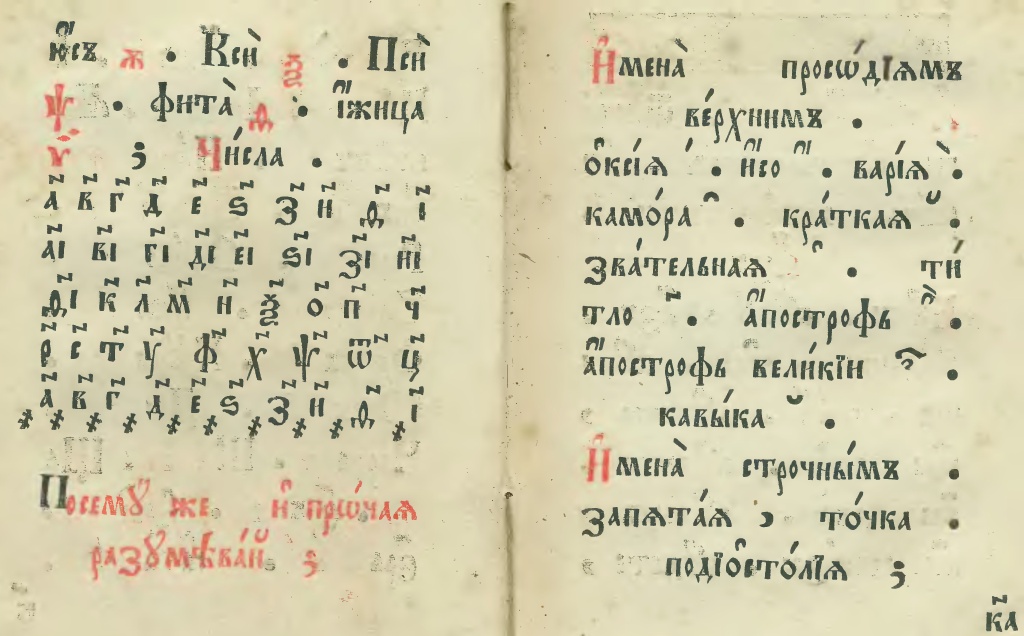 ю҆́съ ѫ . Ксѝ ѯ . Псѝ
ѱ . фита̀ ѳ . і҆́жица
ѵ ; Чи́сла .
а҃ в҃ г҃ д҃ е҃ ѕ҃ з҃ и҃ ѳ҃ і҃
а҃і в҃і г҃і д҃і е҃і ѕ҃і з҃і и҃і
ѳ҃і к҃ л҃ м҃ н҃ ѯ҃ о҃ п҃ ч҃
р҃ с҃ т҃ у҃ ф҃ х҃ ѱ҃ ѿ҃ ц҃
а҃ в҃ г҃ д҃ е҃ ѕ҃ з҃ и҃ ѳ҃ і҃
Посемꙋ̀ же и҆ прѡ́чаѧ
разꙋмѣва́й ;
И҆мена̀ просѡді́ѧмъ
ве́рхнимъ .
о҆ксі́ѧ ́ . и҆́со ҆́ . варі́ѧ ̀ .
камо́ра ̑ . кра́ткаѧ ̆ .
зва́тельнаѧ ҆ . ти́
тло ҃ . а҆по́строфь .
а҆по́строфь вели́кїи .
кавы́ка .
И҆мена̀ строчны́мъ .
запѧта́ѧ , то́чка .
подїо҆сто́лїѧ ;
к҃а